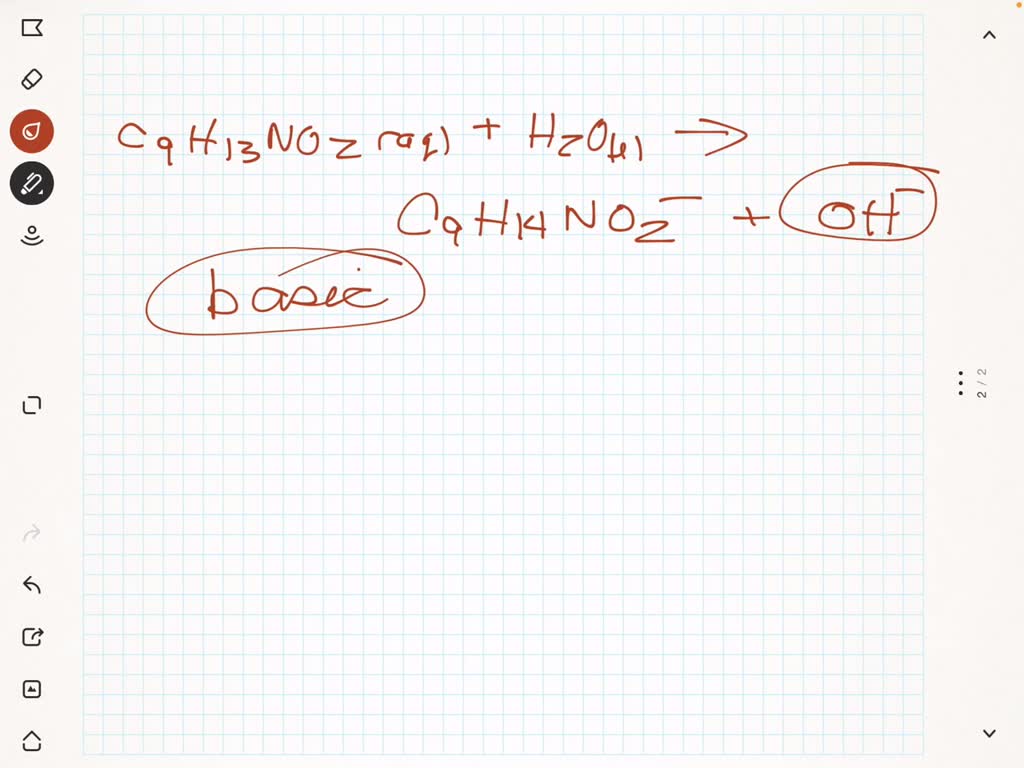 C9H13NO2 (aq) + H2O(l) →
C9H14NO2⁻ + OH⁻
basic
2 / 2